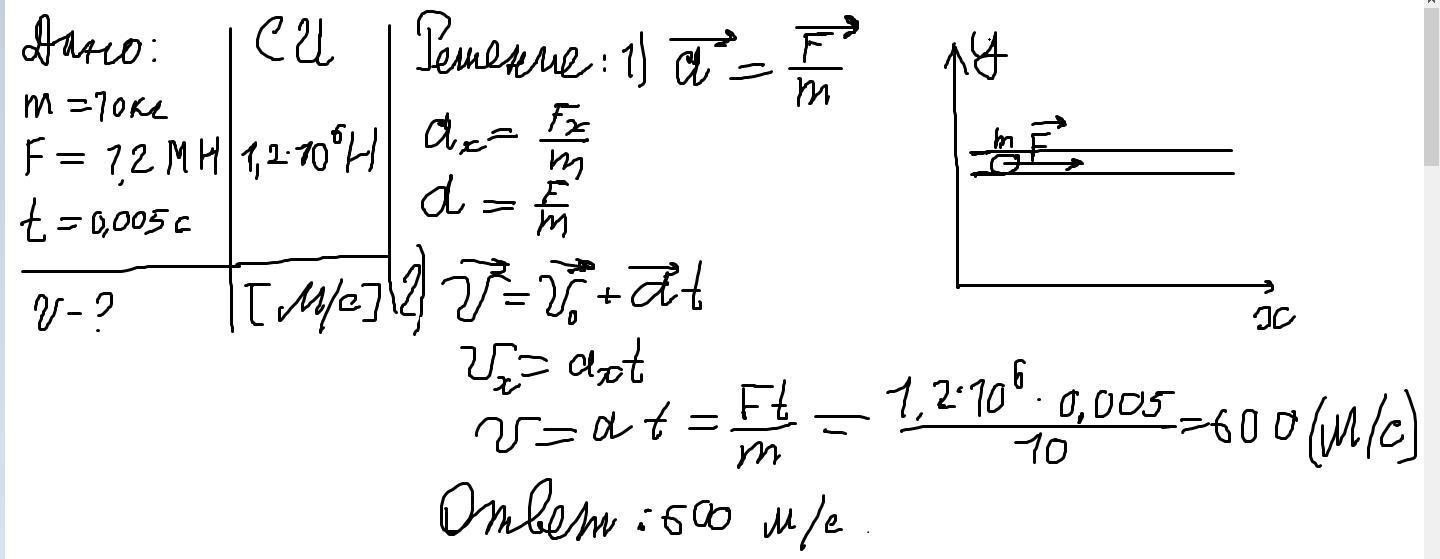 Дано:
m = 10 кг
F = 1,2 МН
t = 0,005 с
v - ?
СИ
1,2·10⁶ Н
[м/с]
Решение: 1) a⃗ = F⃗/m
aₓ = Fₓ/m
a = F/m
2) v⃗ = v⃗₀ + a⃗t
vₓ = aₓt
v = at = Ft/m = 1,2·10⁶ · 0,005/10 = 600 (м/с)
Ответ: 600 м/с.
y
m F⃗
x